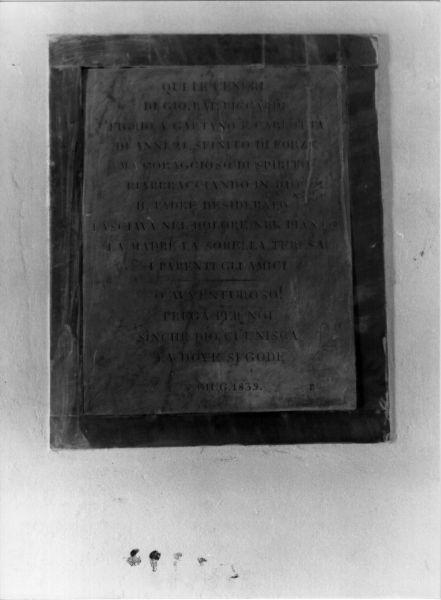 QUI LE CENERI
DI GIO. BAT. RICCARDI
FIGLIO A GAETANO E CARLOTTA
DI ANNI 21, SFINITO DI FORZE
MA CORAGGIOSO DI SPIRITO
RIABBRACCIANDO IN DIO
IL PADRE DESIDERATO
LASCIAVA NEL DOLORE, NEL PIANTO
LA MADRE LA SORELLA TERESA
I PARENTI GLI AMICI
O AVVENTUROSO!
PREGA PER NOI
SINCHÈ DIO CI UNISCA
LÀ DOVE SI GODE
GIUG. 1839.